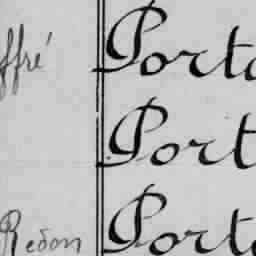 ffré Porta
Port
Redon Porta